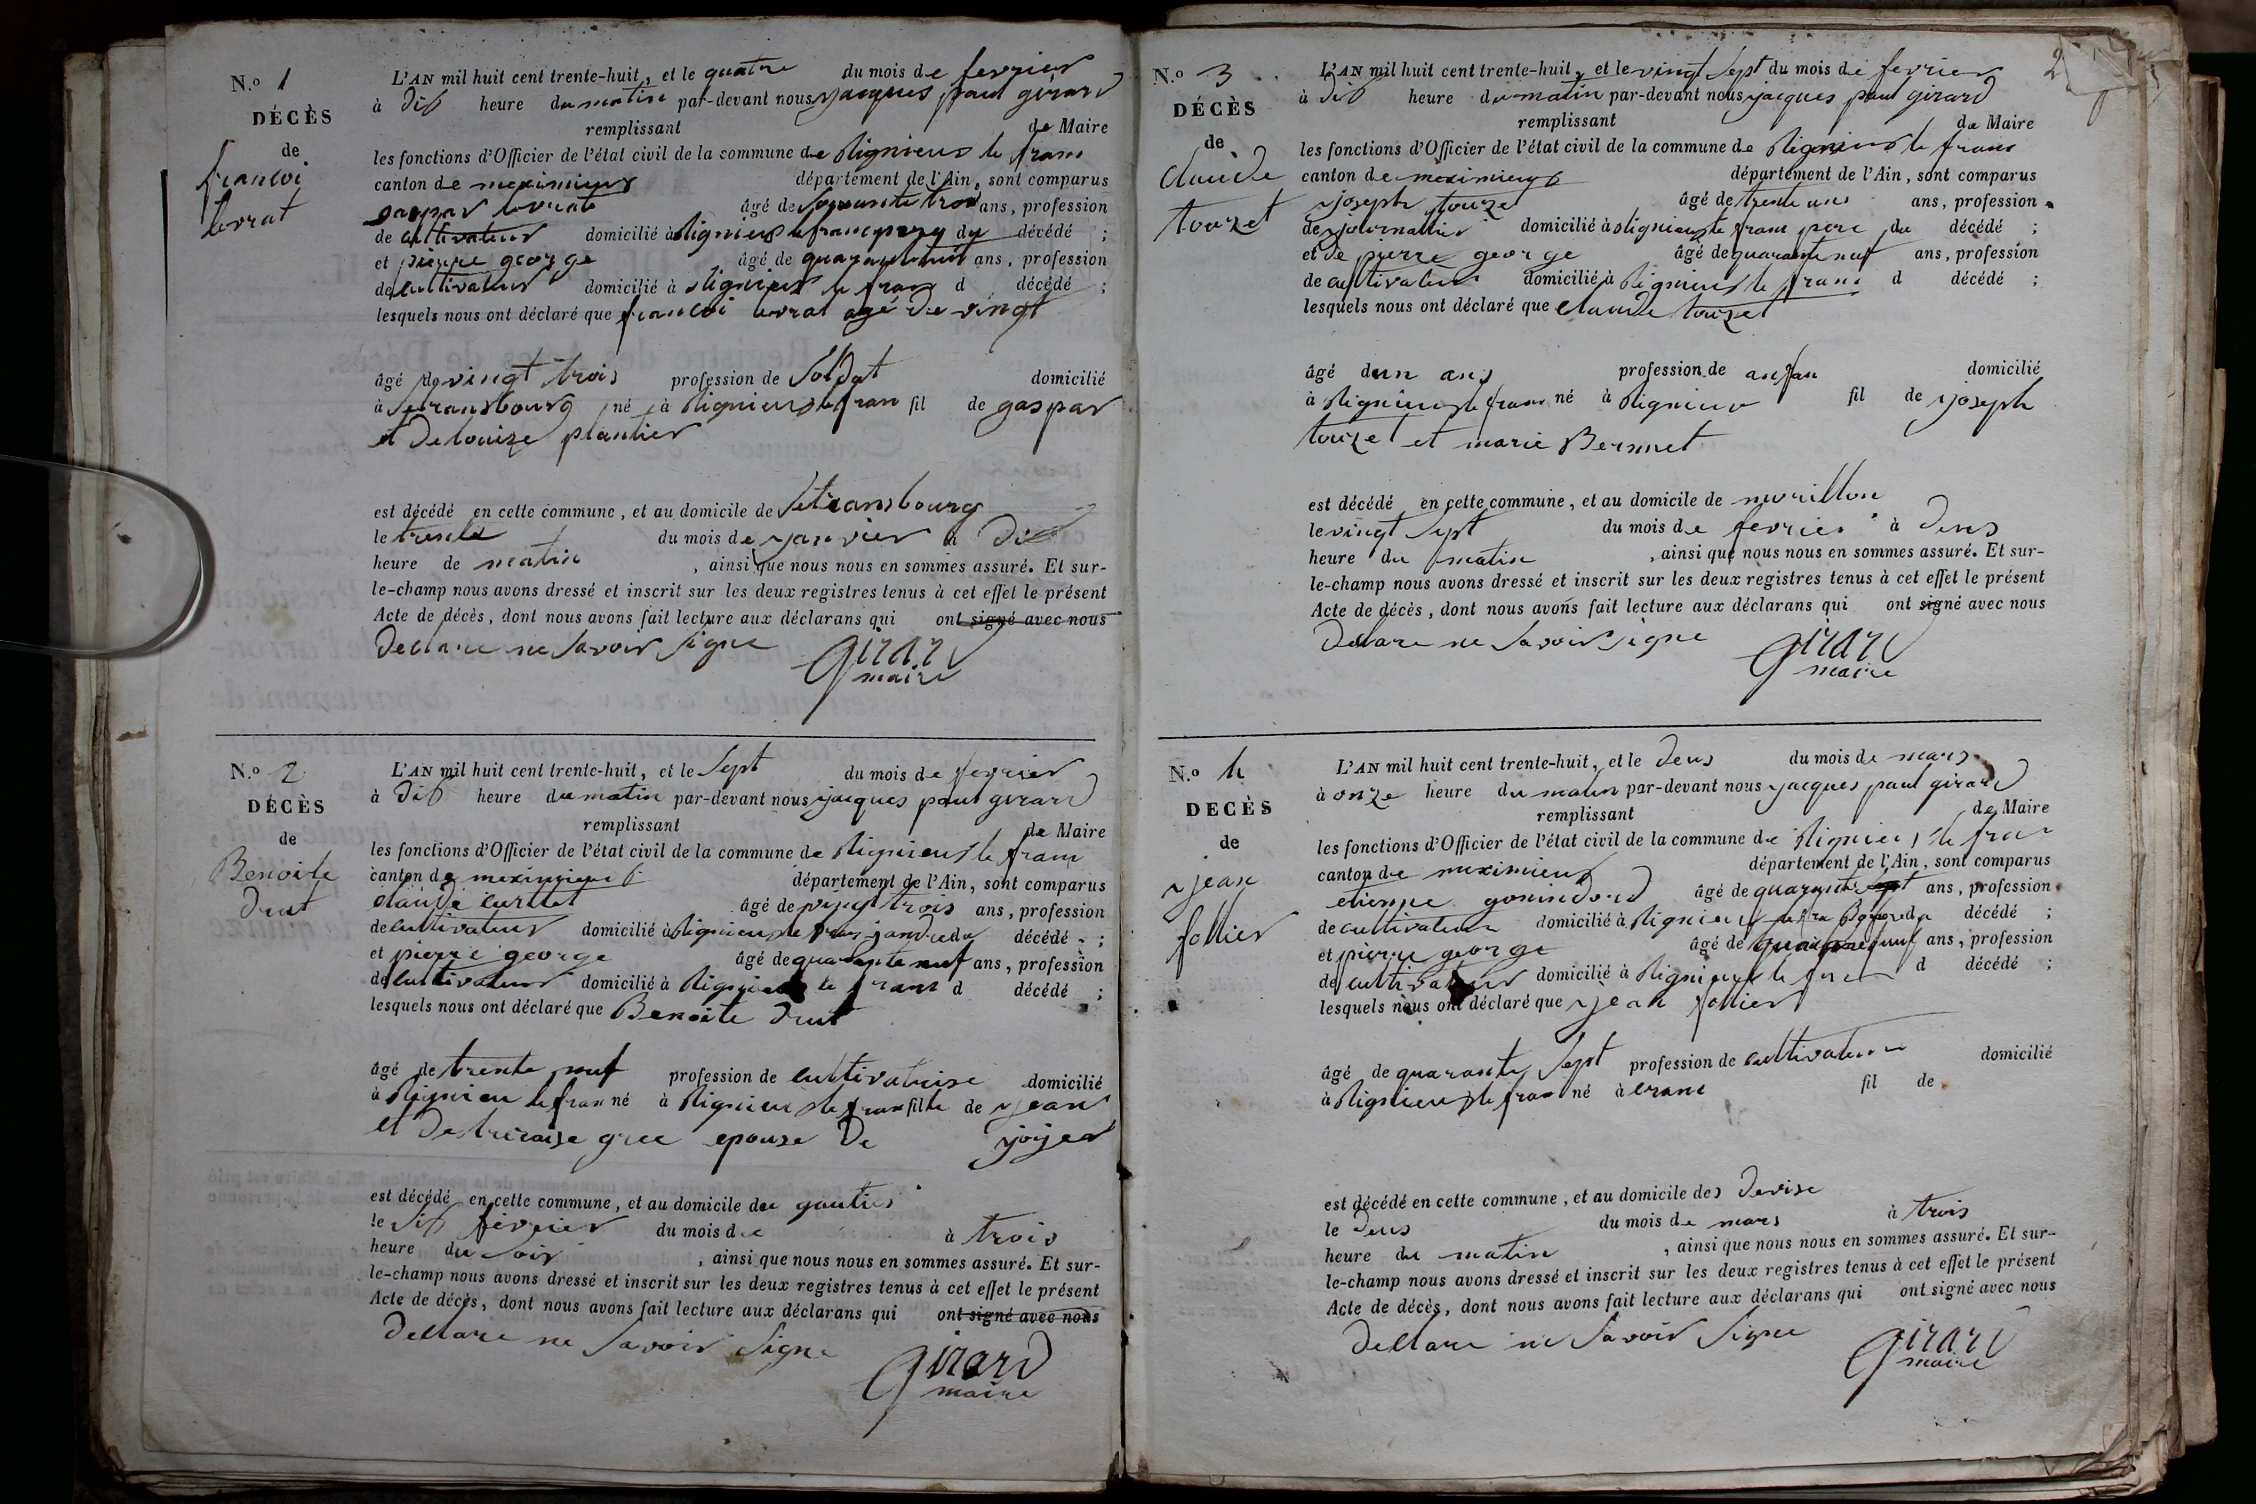 N.o 1
DÉCÈS
de
francoi
levrat
L'AN mil huit cent trente-huit, et le quatre du mois de fevrier
à dix heure du matin par-devant nous jacques paul girard
remplissant de Maire
les fonctions d'Officier de l'état civil de la commune de Rignieux le fran
canton de meximieux département de l'Ain, sont comparus
gaspar levrat âgé de soixante trois ans, profession
de cultivateur domicilié à Rignieux le franc père du décédé ;
et pierre george âgé de ans, profession
de cultivateur domicilié à Rignieux le fran d décédé ;
lesquels nous ont déclaré que francoi levrat agé de vingt
âgé de vingt trois profession de Soldat domicilié
à Setransbourg né à Rignieux le fran fil de gaspar
et de louise plantier
est décédé en cette commune, et au domicile de Setransbourg
le trente du mois de janvier à dix
heure de matin , ainsi que nous nous en sommes assuré. Et sur-
le-champ nous avons dressé et inscrit sur les deux registres tenus à cet effet le présent
Acte de décès, dont nous avons fait lecture aux déclarans qui ont signé avec nous
declare ne savoir signe
girard
maire
N.o 2
DÉCÈS
de
Benoite
drut
L'AN mil huit cent trente-huit, et le Sept du mois de fevrier
à dix heure du matin par-devant nous jacques paul girard
remplissant de Maire
les fonctions d'Officier de l'état civil de la commune de Rignieux le fran
canton de meximieux département de l'Ain, sont comparus
claude curtet âgé de vingt trois ans, profession
de cultivateur domicilié à Rignieux le fran jandre du décédé ;
et pierre george âgé de quarante neuf ans, profession
de cultivateur domicilié à Rignieux le fran d décédé ;
lesquels nous ont déclaré que Benoite drut
âgé de trente neuf profession de cultivatrise domicilié
à Rignieu le fran né à Rignieux le fran fille de jean
et de gree epouse de joyer
est décédé en cette commune, et au domicile du gautier
le six fevrier du mois de à trois
heure du soir , ainsi que nous nous en sommes assuré. Et sur-
le-champ nous avons dressé et inscrit sur les deux registres tenus à cet effet le présent
Acte de décès, dont nous avons fait lecture aux déclarans qui ont signé avec nous
declare ne savoir signe
girard
maire
2
N.o 3
DÉCÈS
de
claude
touzet
L'AN mil huit cent trente-huit, et le vingt Sept du mois de fevrier
à dix heure du matin par-devant nous jacques paul girard
remplissant de Maire
les fonctions d'Officier de l'état civil de la commune de Rignieux le fran
canton de meximieux département de l'Ain, sont comparus
joseph touzet âgé de trente uns ans, profession
de journallier domicilié à Rignieux le fran pere du décédé ;
et de pierre george âgé de quarante neuf ans, profession
de cultivateur domicilié à Rignieux le fran d décédé ;
lesquels nous ont déclaré que claude touzet
âgé dun ans profession de anfan domicilié
à Rignieux le fran né à Rignieux fil de joseph
touzet et marie Bernnet
est décédé en cette commune, et au domicile de murillon
le vingt Sept du mois de fevrier à deus
heure du matin , ainsi que nous nous en sommes assuré. Et sur-
le-champ nous avons dressé et inscrit sur les deux registres tenus à cet effet le présent
Acte de décès, dont nous avons fait lecture aux déclarans qui ont signé avec nous
delare ne savoir signe
girard
maire
N.o 4
DECÈS
de
jean
follier
L'AN mil huit cent trente-huit, et le deus du mois de mars
à onze heure du matin par-devant nous jacques paul girard
remplissant de Maire
les fonctions d'Officier de l'état civil de la commune de Rignieux le fran
canton de meximieux département de l'Ain, sont comparus
etienne gonindard âgé de quarante sept ans, profession
de cultivateur domicilié à Rignieux du décédé ;
et pierre george âgé de quarante neuf ans, profession
de cultivateur domicilié à Rignieux le fran d décédé ;
lesquels nous ont déclaré que jean follier
âgé de quarante Sept profession de cultivateur domicilié
à Rignieux le fran né à crane fil de
est décédé en cette commune, et au domicile des devise
le deus du mois de mars à trois
heure du matin , ainsi que nous nous en sommes assuré. Et sur-
le-champ nous avons dressé et inscrit sur les deux registres tenus à cet effet le présent
Acte de décès, dont nous avons fait lecture aux déclarans qui ont signé avec nous
dellare ne savoir signe
girard
maire